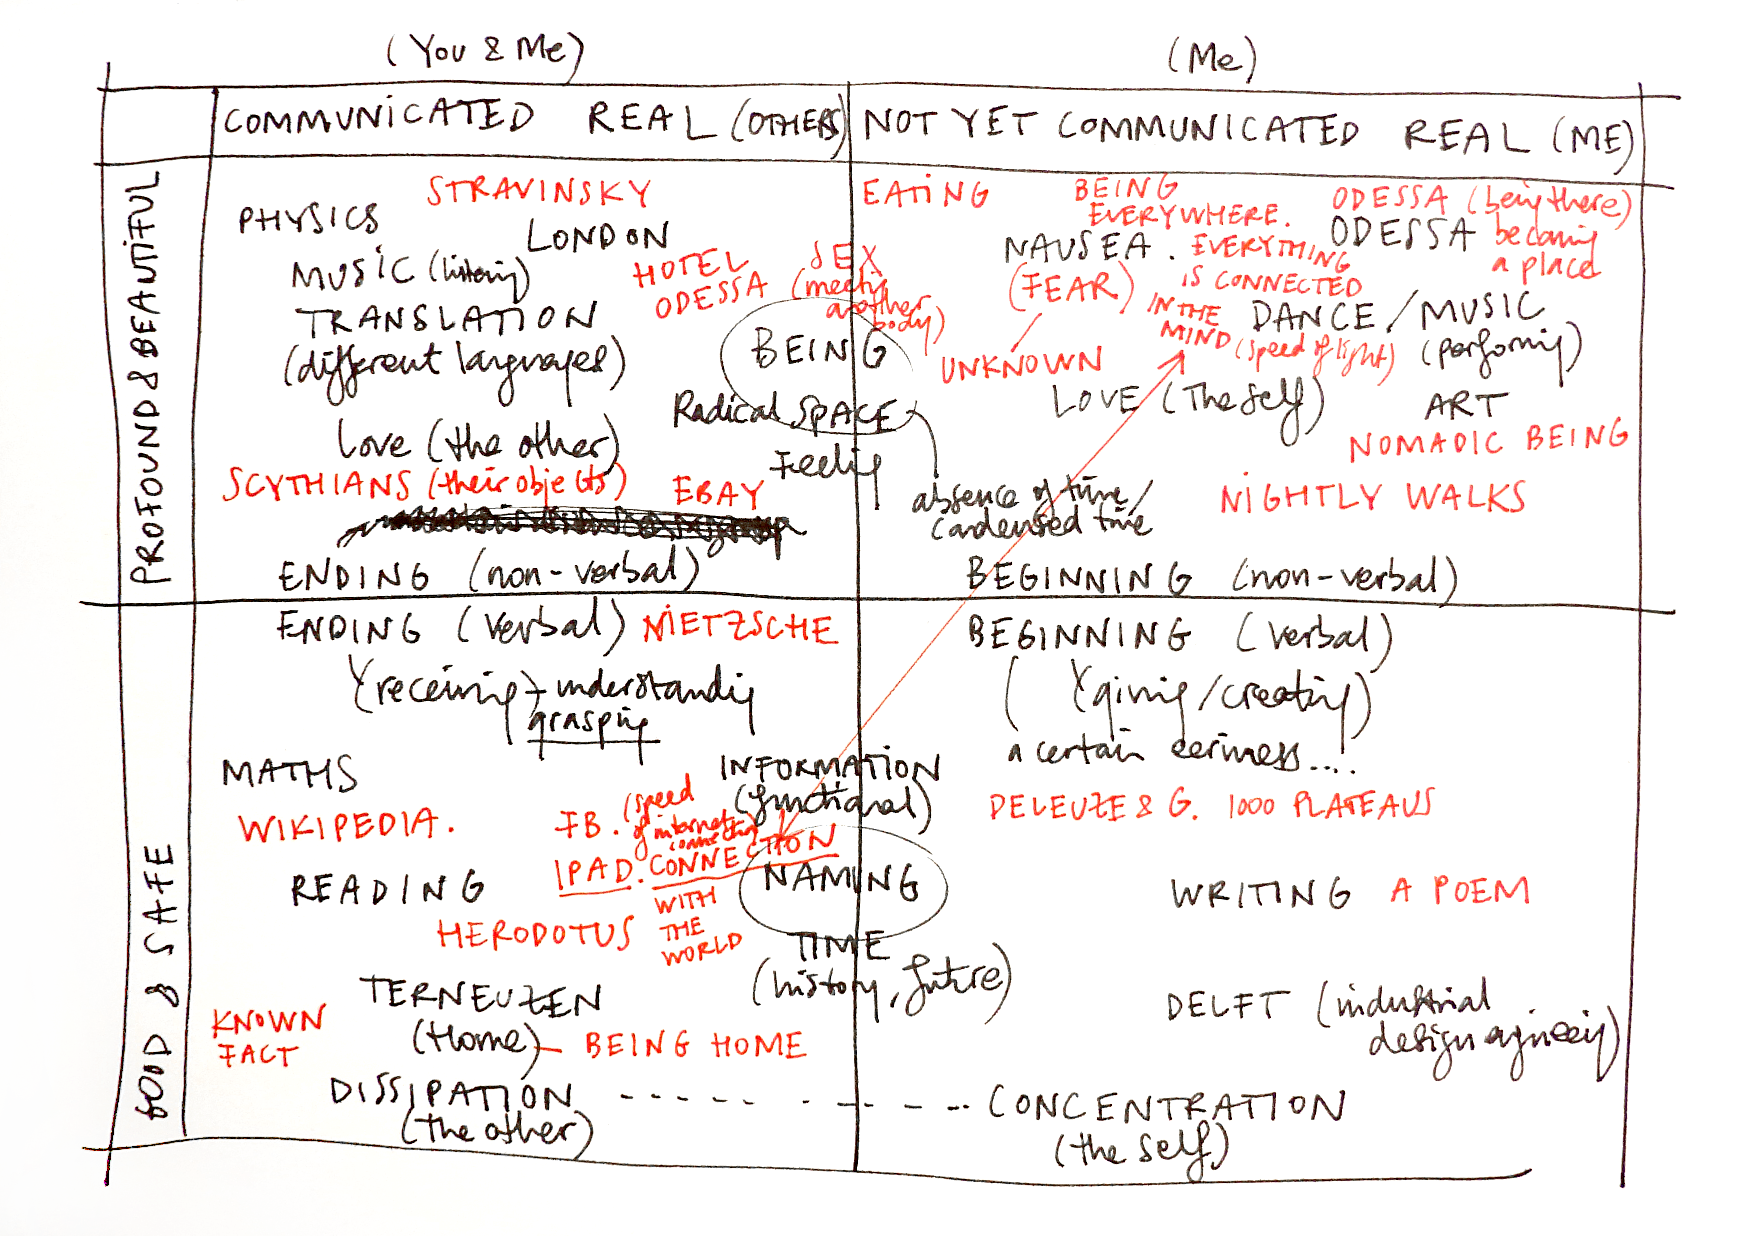 (You & Me)
(Me)
COMMUNICATED REAL (OTHERS)
NOT YET COMMUNICATED REAL (ME)
PROFOUND & BEAUTIFUL
STRAVINSKY
PHYSICS
LONDON
MUSIC (listening)
HOTEL
ODESSA
SEX
(meeting
another
body)
TRANSLATION
(different languages)
BEING
Radical SPACE
Feeling
Love (the other)
SCYTHIANS (their objects)
EBAY
ENDING (non-verbal)
EATING
BEING
EVERYWHERE.
NAUSEA.
(FEAR)
UNKNOWN
EVERYTHING
IS CONNECTED
IN THE
MIND (speed of light)
ODESSA (being there)
ODESSA becoming
a place
DANCE / MUSIC
(performing)
LOVE (The self)
ART
NOMADIC BEING
absence of time /
condensed time
NIGHTLY WALKS
BEGINNING (non-verbal)
GOOD & SAFE
ENDING (verbal) NIETZSCHE
(receiving) + understanding
grasping
MATHS
INFORMATION
(functional)
WIKIPEDIA.
FB. (speed
of internet
connection)
IPAD. CONNECTION
WITH
THE
WORLD
READING
NAMING
HERODOTUS
TIME
(history, future)
TERNEUZEN
(Home) — BEING HOME
KNOWN
FACT
DISSIPATION - - - - - - - - - CONCENTRATION
(the other)
(the self)
BEGINNING (verbal)
(giving / creating)
a certain eeriness....
DELEUZE & G. 1000 PLATEAUS
WRITING A POEM
DELFT (industrial
design engineering)